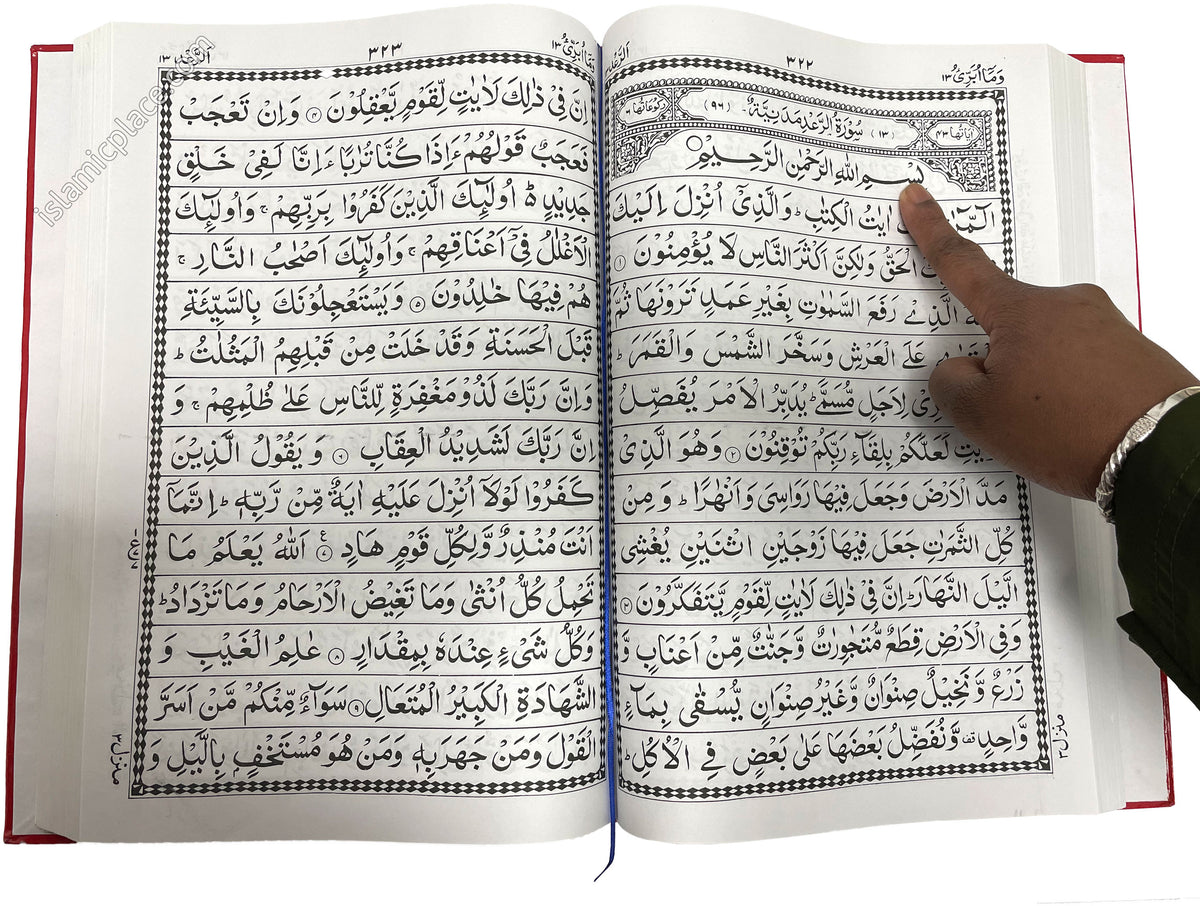 وَمَآ اُبَرِّئُ ١٣
٣٢٢
اٰيَاتُهَا ٤٣
(١٣) سُوْرَةُ الرَّعْدِ مَدَنِيَّةٌ (٩٦)
رُكُوْعَاتُهَا ٦
بِسْمِ اللّٰهِ الرَّحْمٰنِ الرَّحِيْمِ
الٓمّٓرٰ اٰيٰتُ الْكِتٰبِ ؕ وَالَّذِىْٓ اُنْزِلَ اِلَيْكَ
الْحَقُّ وَلٰكِنَّ اَكْثَرَ النَّاسِ لَا يُؤْمِنُوْنَ ۝١
الَّذِىْ رَفَعَ السَّمٰوٰتِ بِغَيْرِ عَمَدٍ تَرَوْنَهَا ثُمَّ
عَلَى الْعَرْشِ وَسَخَّرَ الشَّمْسَ وَالْقَمَرَ ؕ
لِاَجَلٍ مُّسَمًّى ؕ يُدَبِّرُ الْاَمْرَ يُفَصِّلُ
لَعَلَّكُمْ بِلِقَآءِ رَبِّكُمْ تُوْقِنُوْنَ ۝٢ وَهُوَ الَّذِىْ
مَدَّ الْاَرْضَ وَجَعَلَ فِيْهَا رَوَاسِىَ وَاَنْهٰرًا ؕ وَمِنْ
كُلِّ الثَّمَرٰتِ جَعَلَ فِيْهَا زَوْجَيْنِ اثْنَيْنِ يُغْشِى
الَّيْلَ النَّهَارَ ؕ اِنَّ فِىْ ذٰلِكَ لَاٰيٰتٍ لِّقَوْمٍ يَّتَفَكَّرُوْنَ ۝٣
وَفِى الْاَرْضِ قِطَعٌ مُّتَجٰوِرٰتٌ وَّجَنّٰتٌ مِّنْ اَعْنَابٍ وَّ
زَرْعٌ وَّنَخِيْلٌ صِنْوَانٌ وَّغَيْرُ صِنْوَانٍ يُّسْقٰى بِمَآءٍ
وَّاحِدٍ وَّنُفَضِّلُ بَعْضَهَا عَلٰى بَعْضٍ فِى الْاُكُلِ ؕ
منزل ٣
وَمَآ اُبَرِّئُ ١٣
٣٢٣
اِنَّ فِىْ ذٰلِكَ لَاٰيٰتٍ لِّقَوْمٍ يَّعْقِلُوْنَ ۝٤ وَاِنْ تَعْجَبْ
فَعَجَبٌ قَوْلُهُمْ ءَاِذَا كُنَّا تُرٰبًا ءَاِنَّا لَفِىْ خَلْقٍ
جَدِيْدٍ ؕ اُولٰٓئِكَ الَّذِيْنَ كَفَرُوْا بِرَبِّهِمْ ۚ وَاُولٰٓئِكَ
الْاَغْلٰلُ فِىْٓ اَعْنَاقِهِمْ ۚ وَاُولٰٓئِكَ اَصْحٰبُ النَّارِ ۚ
هُمْ فِيْهَا خٰلِدُوْنَ ۝٥ وَيَسْتَعْجِلُوْنَكَ بِالسَّيِّئَةِ
قَبْلَ الْحَسَنَةِ وَقَدْ خَلَتْ مِنْ قَبْلِهِمُ الْمَثُلٰتُ ؕ
وَاِنَّ رَبَّكَ لَذُوْ مَغْفِرَةٍ لِّلنَّاسِ عَلٰى ظُلْمِهِمْ ۚ وَ
اِنَّ رَبَّكَ لَشَدِيْدُ الْعِقَابِ ۝٦ وَيَقُوْلُ الَّذِيْنَ
كَفَرُوْا لَوْلَآ اُنْزِلَ عَلَيْهِ اٰيَةٌ مِّنْ رَّبِّهٖ ؕ اِنَّمَآ
اَنْتَ مُنْذِرٌ وَّلِكُلِّ قَوْمٍ هَادٍ ۝٧ اَللّٰهُ يَعْلَمُ مَا
تَحْمِلُ كُلُّ اُنْثٰى وَمَا تَغِيْضُ الْاَرْحَامُ وَمَا تَزْدَادُ ؕ
وَكُلُّ شَىْءٍ عِنْدَهٗ بِمِقْدَارٍ ۝٨ عٰلِمُ الْغَيْبِ وَ
الشَّهَادَةِ الْكَبِيْرُ الْمُتَعَالِ ۝٩ سَوَآءٌ مِّنْكُمْ مَّنْ اَسَرَّ
الْقَوْلَ وَمَنْ جَهَرَ بِهٖ وَمَنْ هُوَ مُسْتَخْفٍۭ بِالَّيْلِ وَ
منزل ٣
islamicplace.com